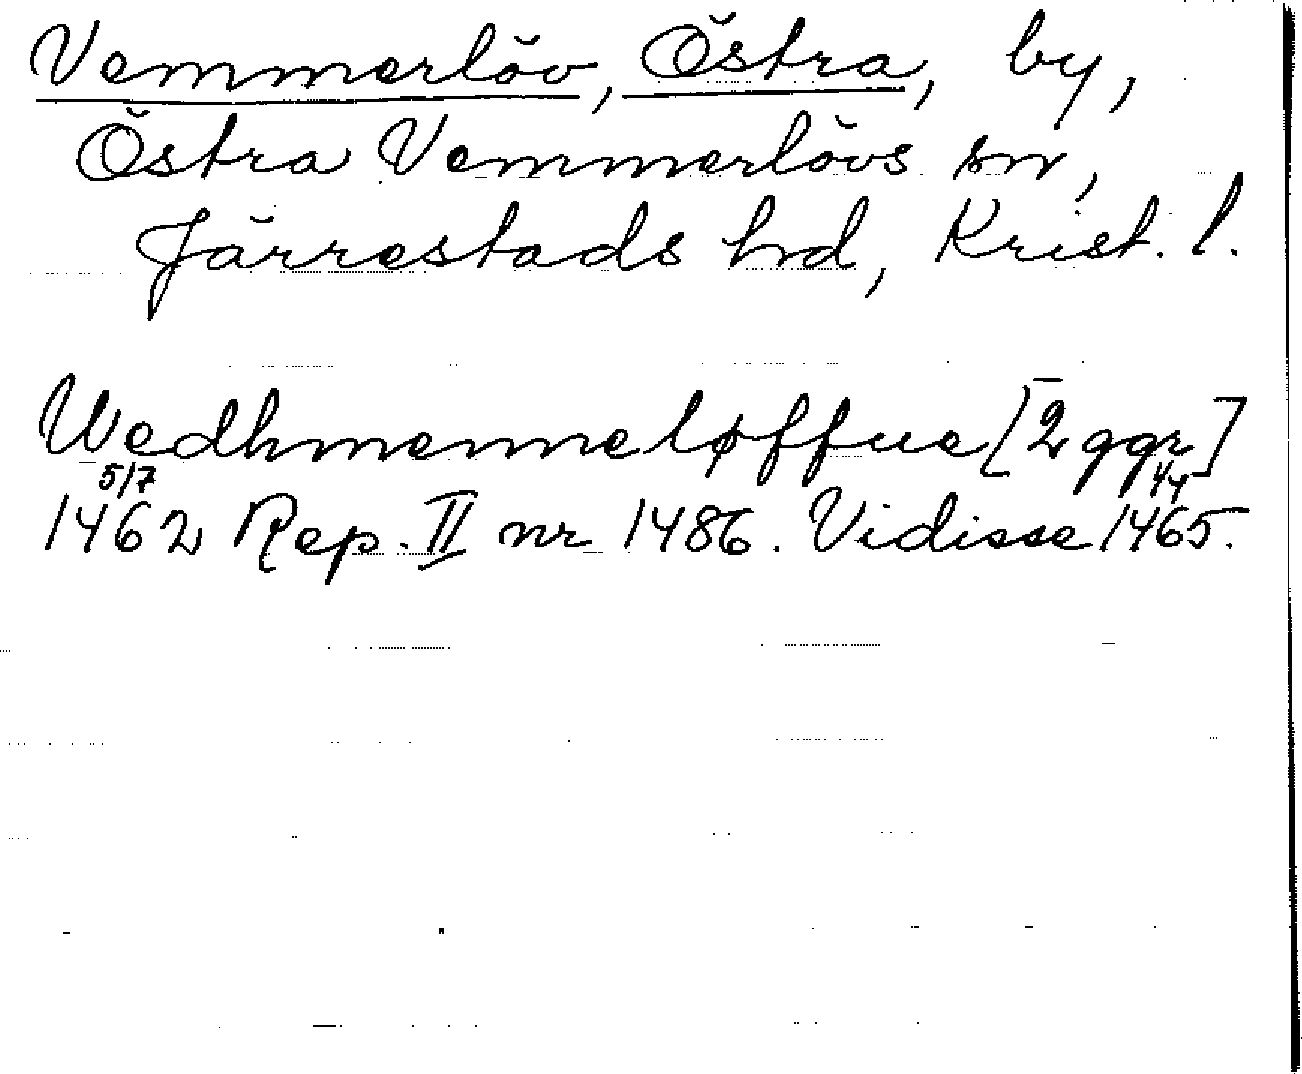 Vemmerlöv, Östra, by,
Östra Vemmerlövs sn,
Järrestads hd, Krist. l.
Wedhmenneløffue [2 ggr]
5/7 4/4
1462 Rep. II nr 1486. Vidisse 1465.